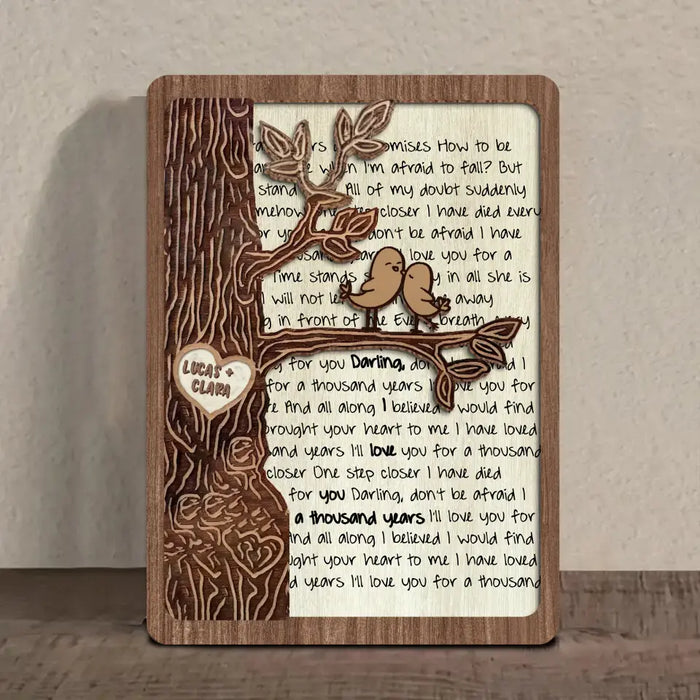 rs
omises How to be
when I'm afraid to fall? But
stand All of my doubt suddenly
One step closer I have died every
don't be afraid I have
love you for a
Time stands in all she is
I will not le away
in front of breath
for you Darling, don't I
for a thousand years I'll love you for
And all along I believed I would find
brought your heart to me I have loved
and years I'll love you for a thousand
closer One step closer I have died
for you Darling, don't be afraid I
a thousand years I'll love you for
And all along I believed I would find
ught your heart to me I have loved
d years I'll love you for a thousand
LUCAS +
CLARA